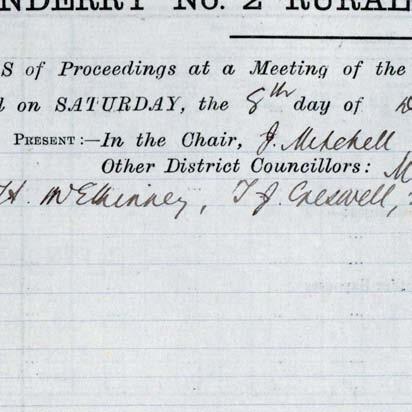 NDERRY No. 2 RURAL
S of Proceedings at a Meeting of the
d on SATURDAY, the 8th day of D
PRESENT:—In the Chair, J. Mitchell
Other District Councillors: M
H. McElhinney, T J. Creswell,